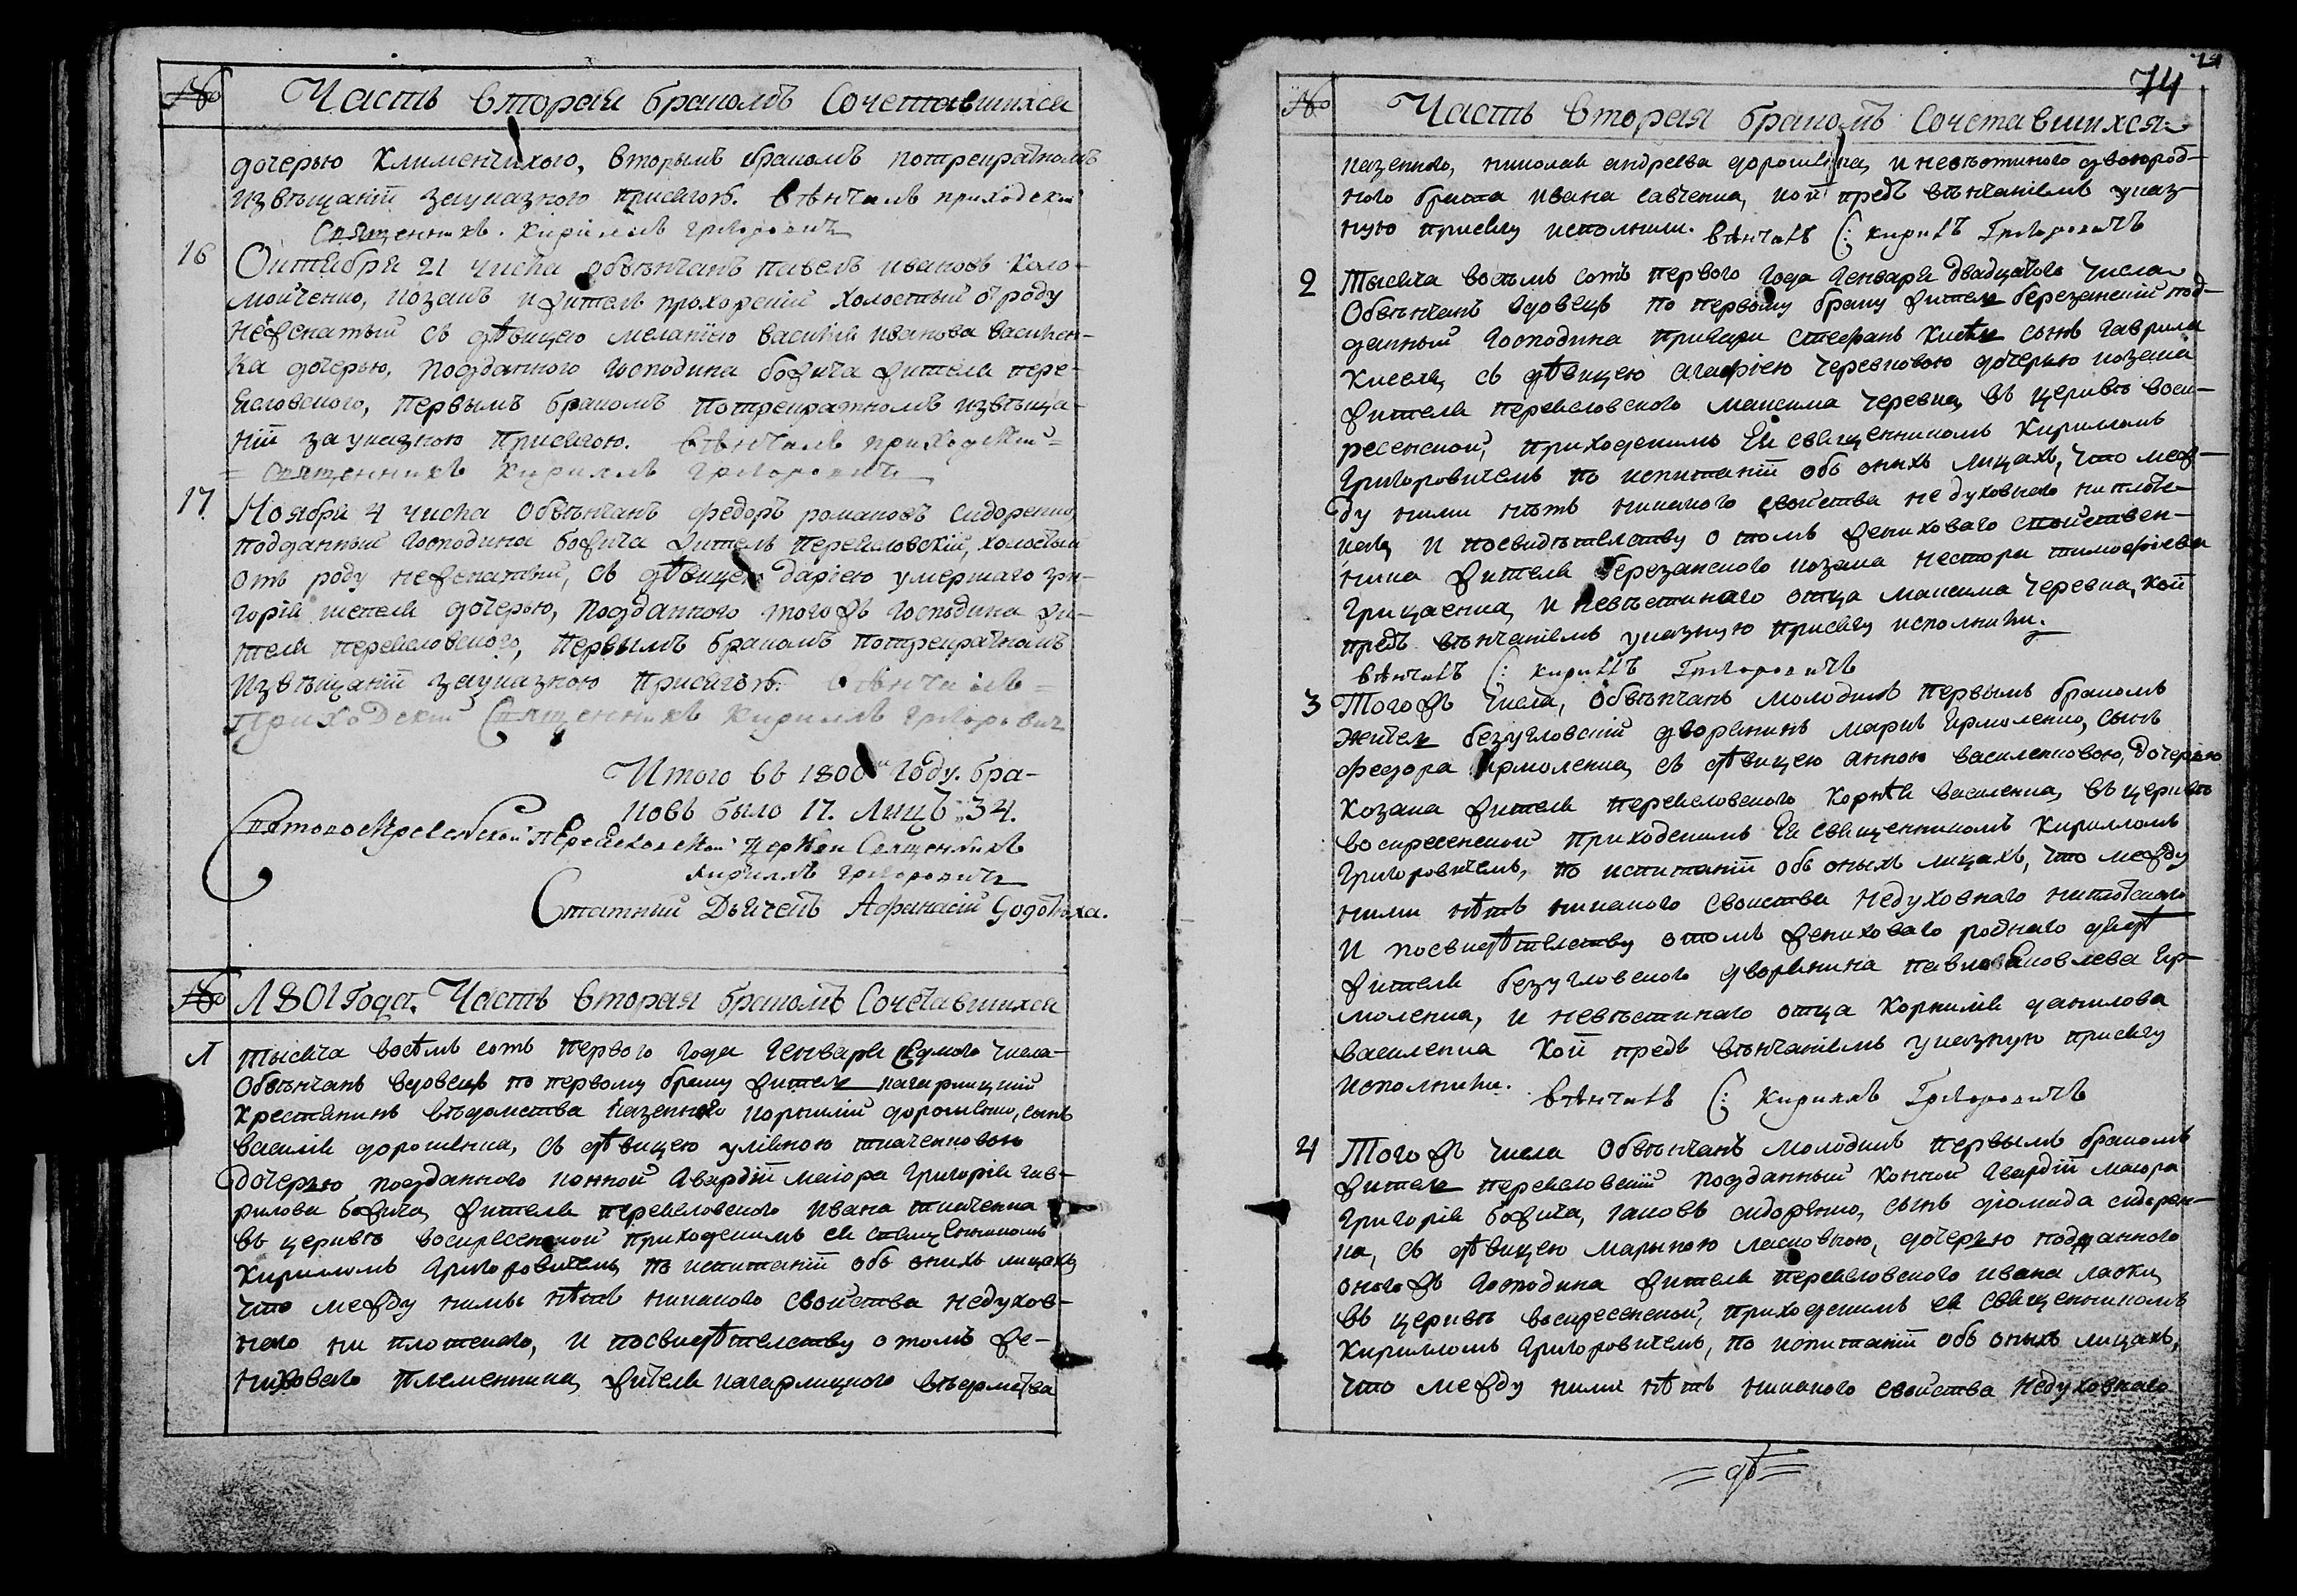 № Часть вторая бракомъ Сочетавшихся
дочерью Клименчихого, вторымъ бракомъ потрекратномъ
извѣщанїи зауказною присягою. вѣнчалъ приходскїй
Священникъ Кириллъ Григоровичъ
16 Октября 21 числа обвѣнчанъ павелъ ивановъ Коло-
мойченко, козакъ и житель прохорскїй холостый ѿ роду
неженатый съ дѣвицею меланїею василїя иванова василен-
ка дочерью, подданного господина божича жителя пере-
ясловского, первымъ бракомъ потрекратномъ извѣща-
нїи зауказною присягою. вѣнчалъ приходскїй =
= Священникъ Кириллъ Григоровичъ
17 Ноября 4 числа обвѣнчанъ федоръ романовъ сидоренко,
подданный господина божича житель переясловскїй, холостый
отъ роду неженатый, съ дѣвицею дарїею умершаго гри-
горїя шепеля дочерью, подданного тогожъ господина жи-
теля переясловского, первымъ бракомъ потрекратномъ
извѣщанїи зауказною присягою. вѣнчалъ =
Приходскїй Священникъ Кириллъ Григоровичъ
Итого въ 1800м году. бра-
ковъ было 17. Лицъ 34.
Святовоскресенской переясловской Церкви Священникъ
Кириллъ Григоровичъ
Статный Дьячекъ Афанасїй
№ 1801 Года. Часть вторая бракомъ Сочетавшихся
1 Тысяча восѣмъ сотъ первого года Генваря седмого числа
обвѣнчанъ вдовецъ по первому браку житель кагарлицкїй
крестянинъ вѣдомства казенного корнилїй дорошенко, сынъ
василїя дорошенка, съ дѣвицею улїяною ткаченковою
дочерью подданного конной Гвардїи маїора григорїя гав-
рилова божича, жителя переясловского ивана ткаченка
въ церквѣ воскресенской приходскимъ ея священникомъ
Кирилломъ Григоровичемъ, по испитанїи объ онихъ лицахъ,
что между ними нѣтъ никакого свойства недухов-
ного ни плотского, и посвидѣтелству о томъ же-
нихового племенника, жителя кагарлицкого вѣдомства
74
№ Часть вторая бракомъ Сочетавшихся
казенного, николая андреева дорошенка, и невѣстиного двоюрод-
ного брата ивана савченка, кои предъ вѣнчанїемъ указ-
ную присягу исполнили. вѣнчалъ С: Кириллъ Григоровичъ
2 Тысяча восѣмъ сотъ первого года Генваря двадцатого числа
Обвѣнчанъ вдовецъ по первому браку житель березанскїй под-
данный господина стефанъ Кисѣль сынъ гаврила
Киселя, съ дѣвицею агафїею черевковою дочерью козака
жителя переясловского максима черевка, въ церквѣ воск-
ресенской, приходскимъ Ея священникомъ Кирилломъ
Григоровичемъ по испитанїи объ онихъ лицахъ, что меж-
ду ними нѣтъ никакого свойства недуховного ни плотс-
кого, и посвидѣтелству о томъ женихового свойствен-
ника жителя березанского козака нестора тимофїева
грицаенка, и невѣстинаго отца максима черевка, кои
предъ вѣнчанїемъ указную присягу исполнили.
вѣнчалъ С: Кириллъ Григоровичъ
3 Тогожъ числа, обвѣнчанъ молодикъ первымъ бракомъ
житель безугловскїй дворянинъ маркъ Ермоленко, сынъ
федора Ермоленка, съ дѣвицею анною василенковою, дочерью
козака жителя переясловского корнѣя василенка, въ церквѣ
воскресенской приходскимъ Ея священникомъ Кирилломъ
Григоровичемъ, по испитанїи объ оныхъ лицахъ, что между
ними нѣтъ никакого свойства недуховнаго ни плотскаго
и посвидѣтелству о томъ женихового родного дядѣ
жителя безугловского дворянина павла Яковлева Ер-
моленка, и невѣстинаго отца корнилїя данилова
василенка кои предъ вѣнчанїемъ указную присягу
исполнили. вѣнчалъ С: Кириллъ Григоровичъ
4 Тогожъ числа обвѣнчанъ молодикъ первымъ бракомъ
житель переясловскїй подданный конной гвардїи маїора
григорїя божича, яковъ сидоренко, сынъ дїомида сидорен-
ка, съ дѣвицею марыною ласковною, дочерью подданного
оногожъ господина жителя переясловского ивана ласки,
въ церквѣ воскресенской, приходскимъ ея священникомъ
Кирилломъ Григоровичемъ, по испитанїи объ оныхъ лицахъ,
что между ними нѣтъ никакого свойства недуховнаго